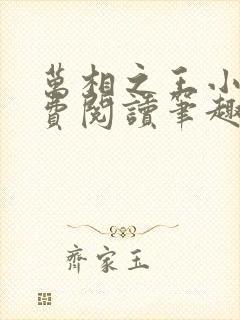 萬相之王小
費閱讀筆趣
齊家玉